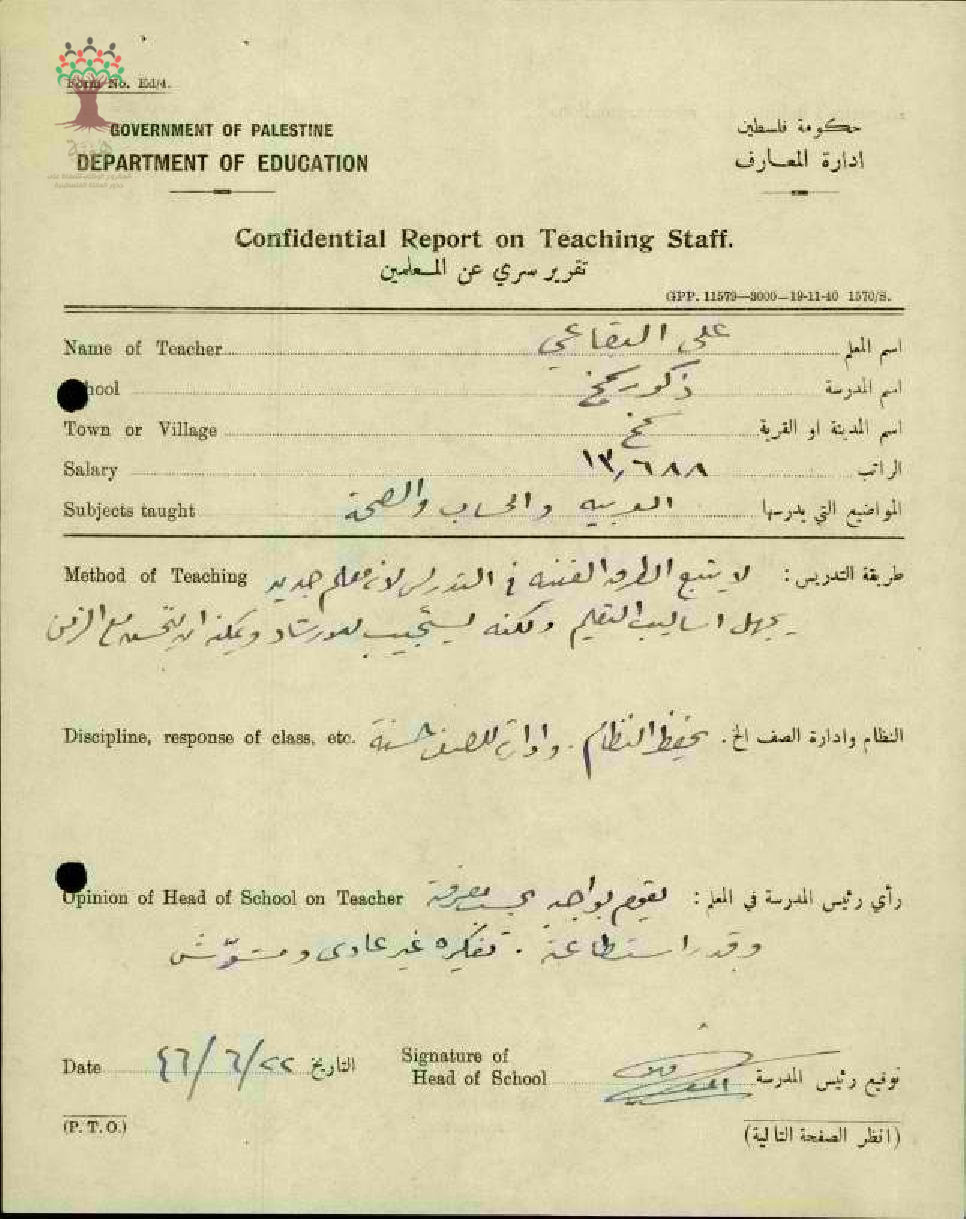 Form No. Ed/4.
GOVERNMENT OF PALESTINE
حكومة فلسطين
DEPARTMENT OF EDUCATION
ادارة المعارف
Confidential Report on Teaching Staff.
تقرير سري عن المعلمين
GPP. 11579—3000—19-11-40 1570/S.
Name of Teacher علي البقاعي اسم المعلم
School ذكور سمخ اسم المدرسة
Town or Village سمخ اسم المدينة او القرية
Salary ١٣,٦٨٨ الراتب
Subjects taught العربيه والحساب والصحة المواضيع التي يدرسها
Method of Teaching طريقة التدريس : لا يتبع الطرق الفنيه في التدريس لانه معلم جديد
يجهل اساليب التعليم ولكنه يستجيب للارشاد ويمكنه ان يتحسن مع الزمن
Discipline, response of class, etc. النظام وادارة الصف الخ . يحفظ النظام . وادارته للصف حسنة
Opinion of Head of School on Teacher رأي رئيس المدرسة في المعلم : يقوم بواجبه بحسب معرفته
وقدر استطاعته . تفكيره غير عادى ومشوّش
Date ٤٦/٦/٢٢ التاريخ
Signature of Head of School توقيع رئيس المدرسة
(P. T. O.)
(انظر الصفحة التالية)